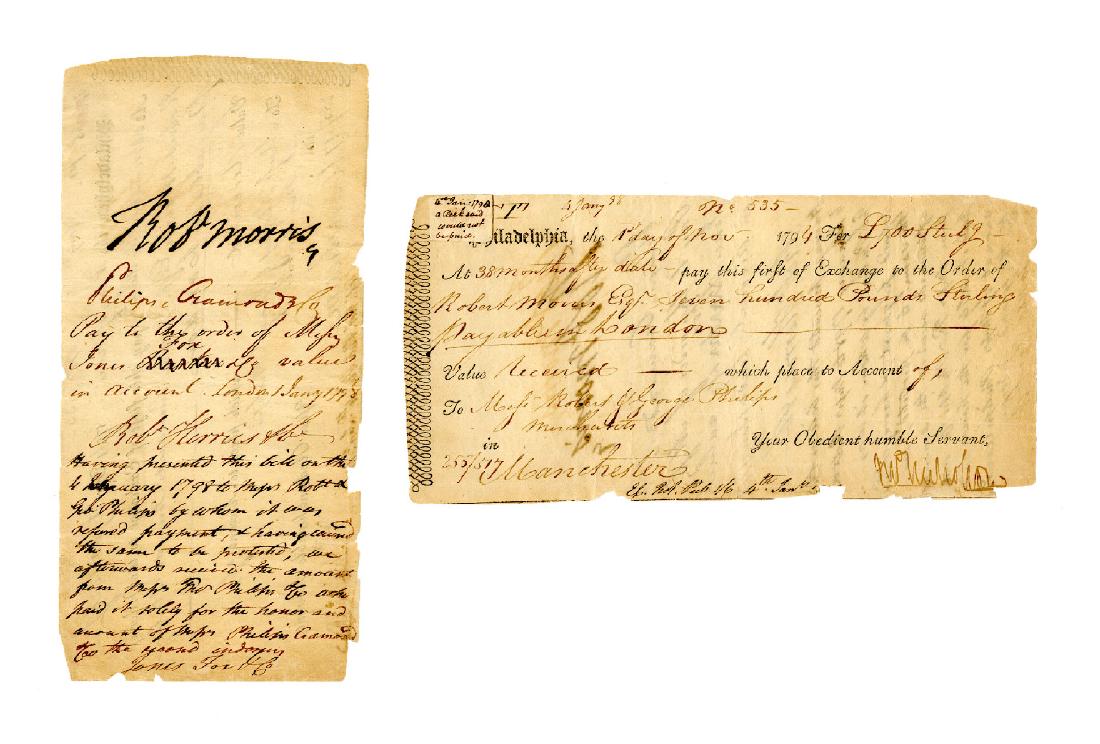 Robt Morris
Philips, Cramond & Co
Pay to the order of Messrs
Fox
Jones & Co value
in account London 1 Jany 1798
Robt Herries & Co
Having presented this bill on the
4 January 1798 to Messrs Robt &
Geo Philips by whom it was
refused payment, & having caused
the same to be protested, we
afterwards receive the amount
from Messrs Thos Philips & Co who
paid it solely for the honor and
account of Messrs Philips Cramond
& Co the second indorsers
Jones Fox & Co
4th Jany 1798
a Clerk said
would not
be paid.
4 Jany 98
No 535 –
iladelphia, the 1st day of Nov, 1794 For £700 Sterlg –
At 38 months after date – pay this first of Exchange to the Order of
Robert Morris Esqr. Seven hundred Pounds Sterling
Payable in London
Value Received — which place to Account of,
To Messrs Robert & George Philips
Merchants
in
Your Obedient humble Servant,
255/517 Manchester
Jno Nicholson
4th Jany